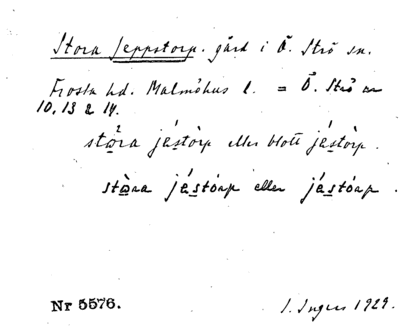 Stora Jeppstorp. gård i Ö. Strö sn.
Frosta hd. Malmöhus l. = Ö. Strö nr
10, 13 & 14.
stǫ̀ra jéstòrp eller blott jéstòrp.
stǫ̀ra jéstórp eller jéstórp.
Nr 5576.
I. Ingers 1929.